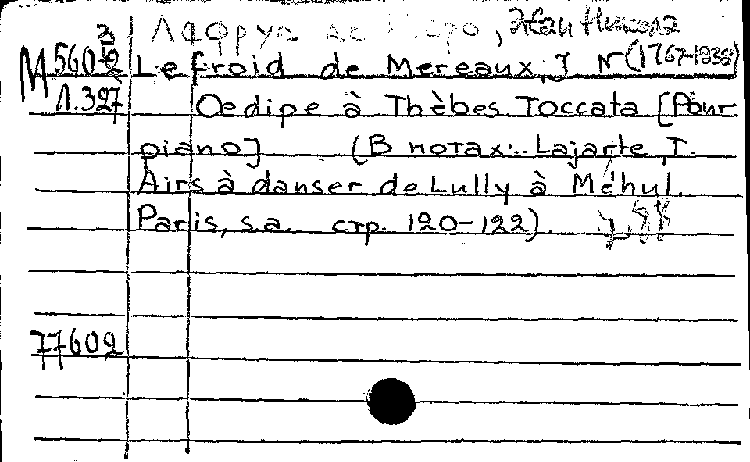 M 560/2 Lefroid de Mereaux, J N (1767-1838)
Л.327 Oedipe à Thèbes Toccata [Pour
piano] (В нотах: Lajarte, T.
Airs à danser de Lully à Méhul.
Paris, s.a. стр. 120-122).
77602